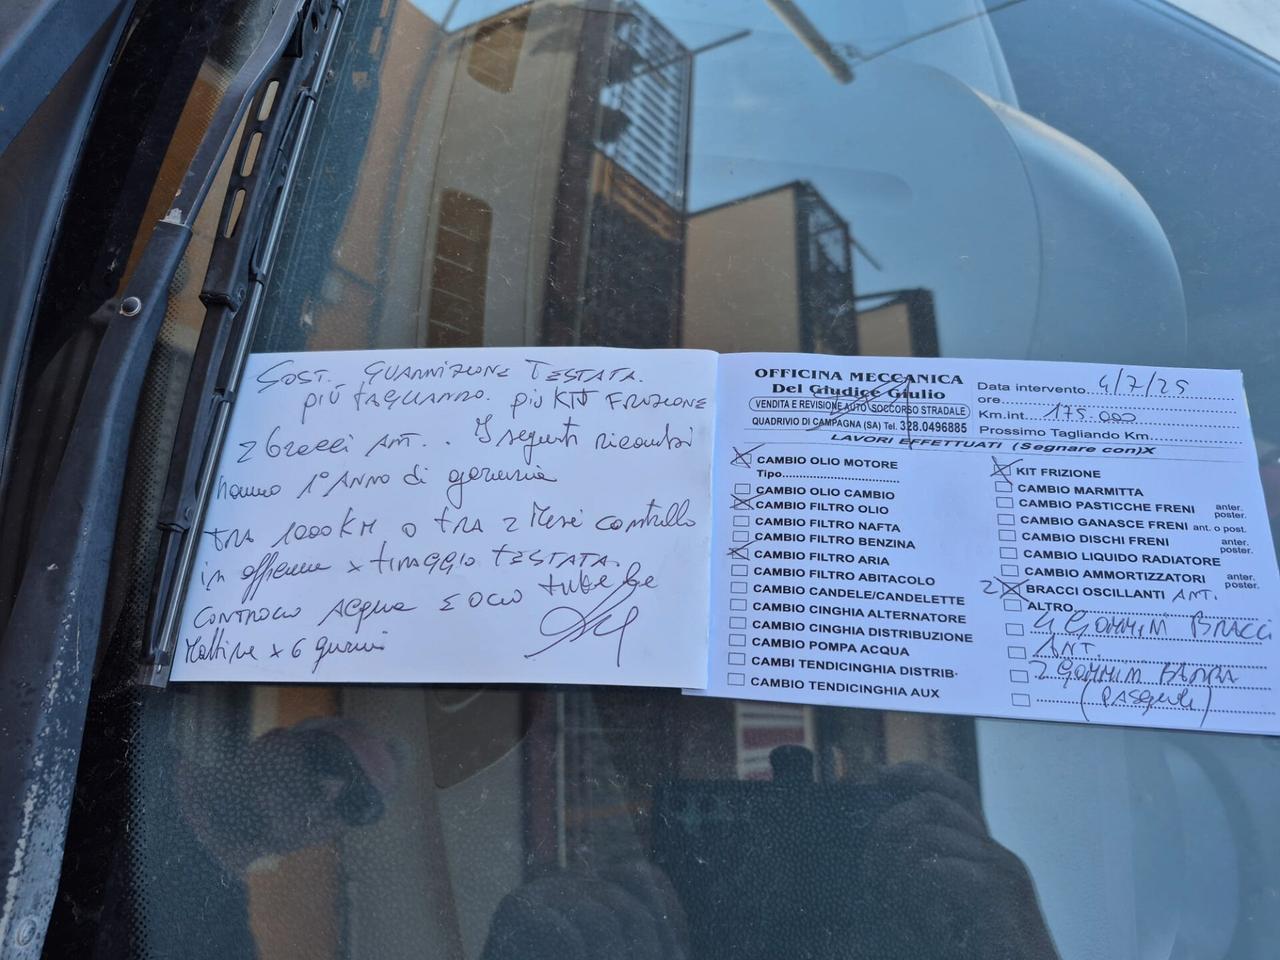 SOST. GUARNIZIONE TESTATA.
più TAGLIANDO. più KIT FRIZIONE
2 Bracci ANT.. I seguenti ricambi
hanno 1° ANNO di garanzia
TRA 1000 KM O TRA 2 Mesi controllo
in officina x TIRAGGIO TESTATA.
CONTROLLO ACQUA E OLIO tutte le
Mattine x 6 giorni
OFFICINA MECCANICA
Del Giudice Giulio
VENDITA E REVISIONE AUTO SOCCORSO STRADALE
QUADRIVIO DI CAMPAGNA (SA) Tel. 328.0496885
Data intervento.. 4/7/25
ore
Km.int. 175.000
Prossimo Tagliando Km.
LAVORI EFFETTUATI (Segnare con)X
CAMBIO OLIO MOTORE
Tipo
CAMBIO OLIO CAMBIO
CAMBIO FILTRO OLIO
CAMBIO FILTRO NAFTA
CAMBIO FILTRO BENZINA
CAMBIO FILTRO ARIA
CAMBIO FILTRO ABITACOLO
CAMBIO CANDELE/CANDELETTE
CAMBIO CINGHIA ALTERNATORE
CAMBIO CINGHIA DISTRIBUZIONE
CAMBIO POMPA ACQUA
CAMBI TENDICINGHIA DISTRIB.
CAMBIO TENDICINGHIA AUX
KIT FRIZIONE
CAMBIO MARMITTA
CAMBIO PASTICCHE FRENI anter. poster.
CAMBIO GANASCE FRENI ant. o post.
CAMBIO DISCHI FRENI anter. poster.
CAMBIO LIQUIDO RADIATORE
CAMBIO AMMORTIZZATORI anter. poster.
2 BRACCI OSCILLANTI ANT.
ALTRO
4 GOMMIM BRACCI
ANT.
2 GOMMIM BARRA
(PASquale)